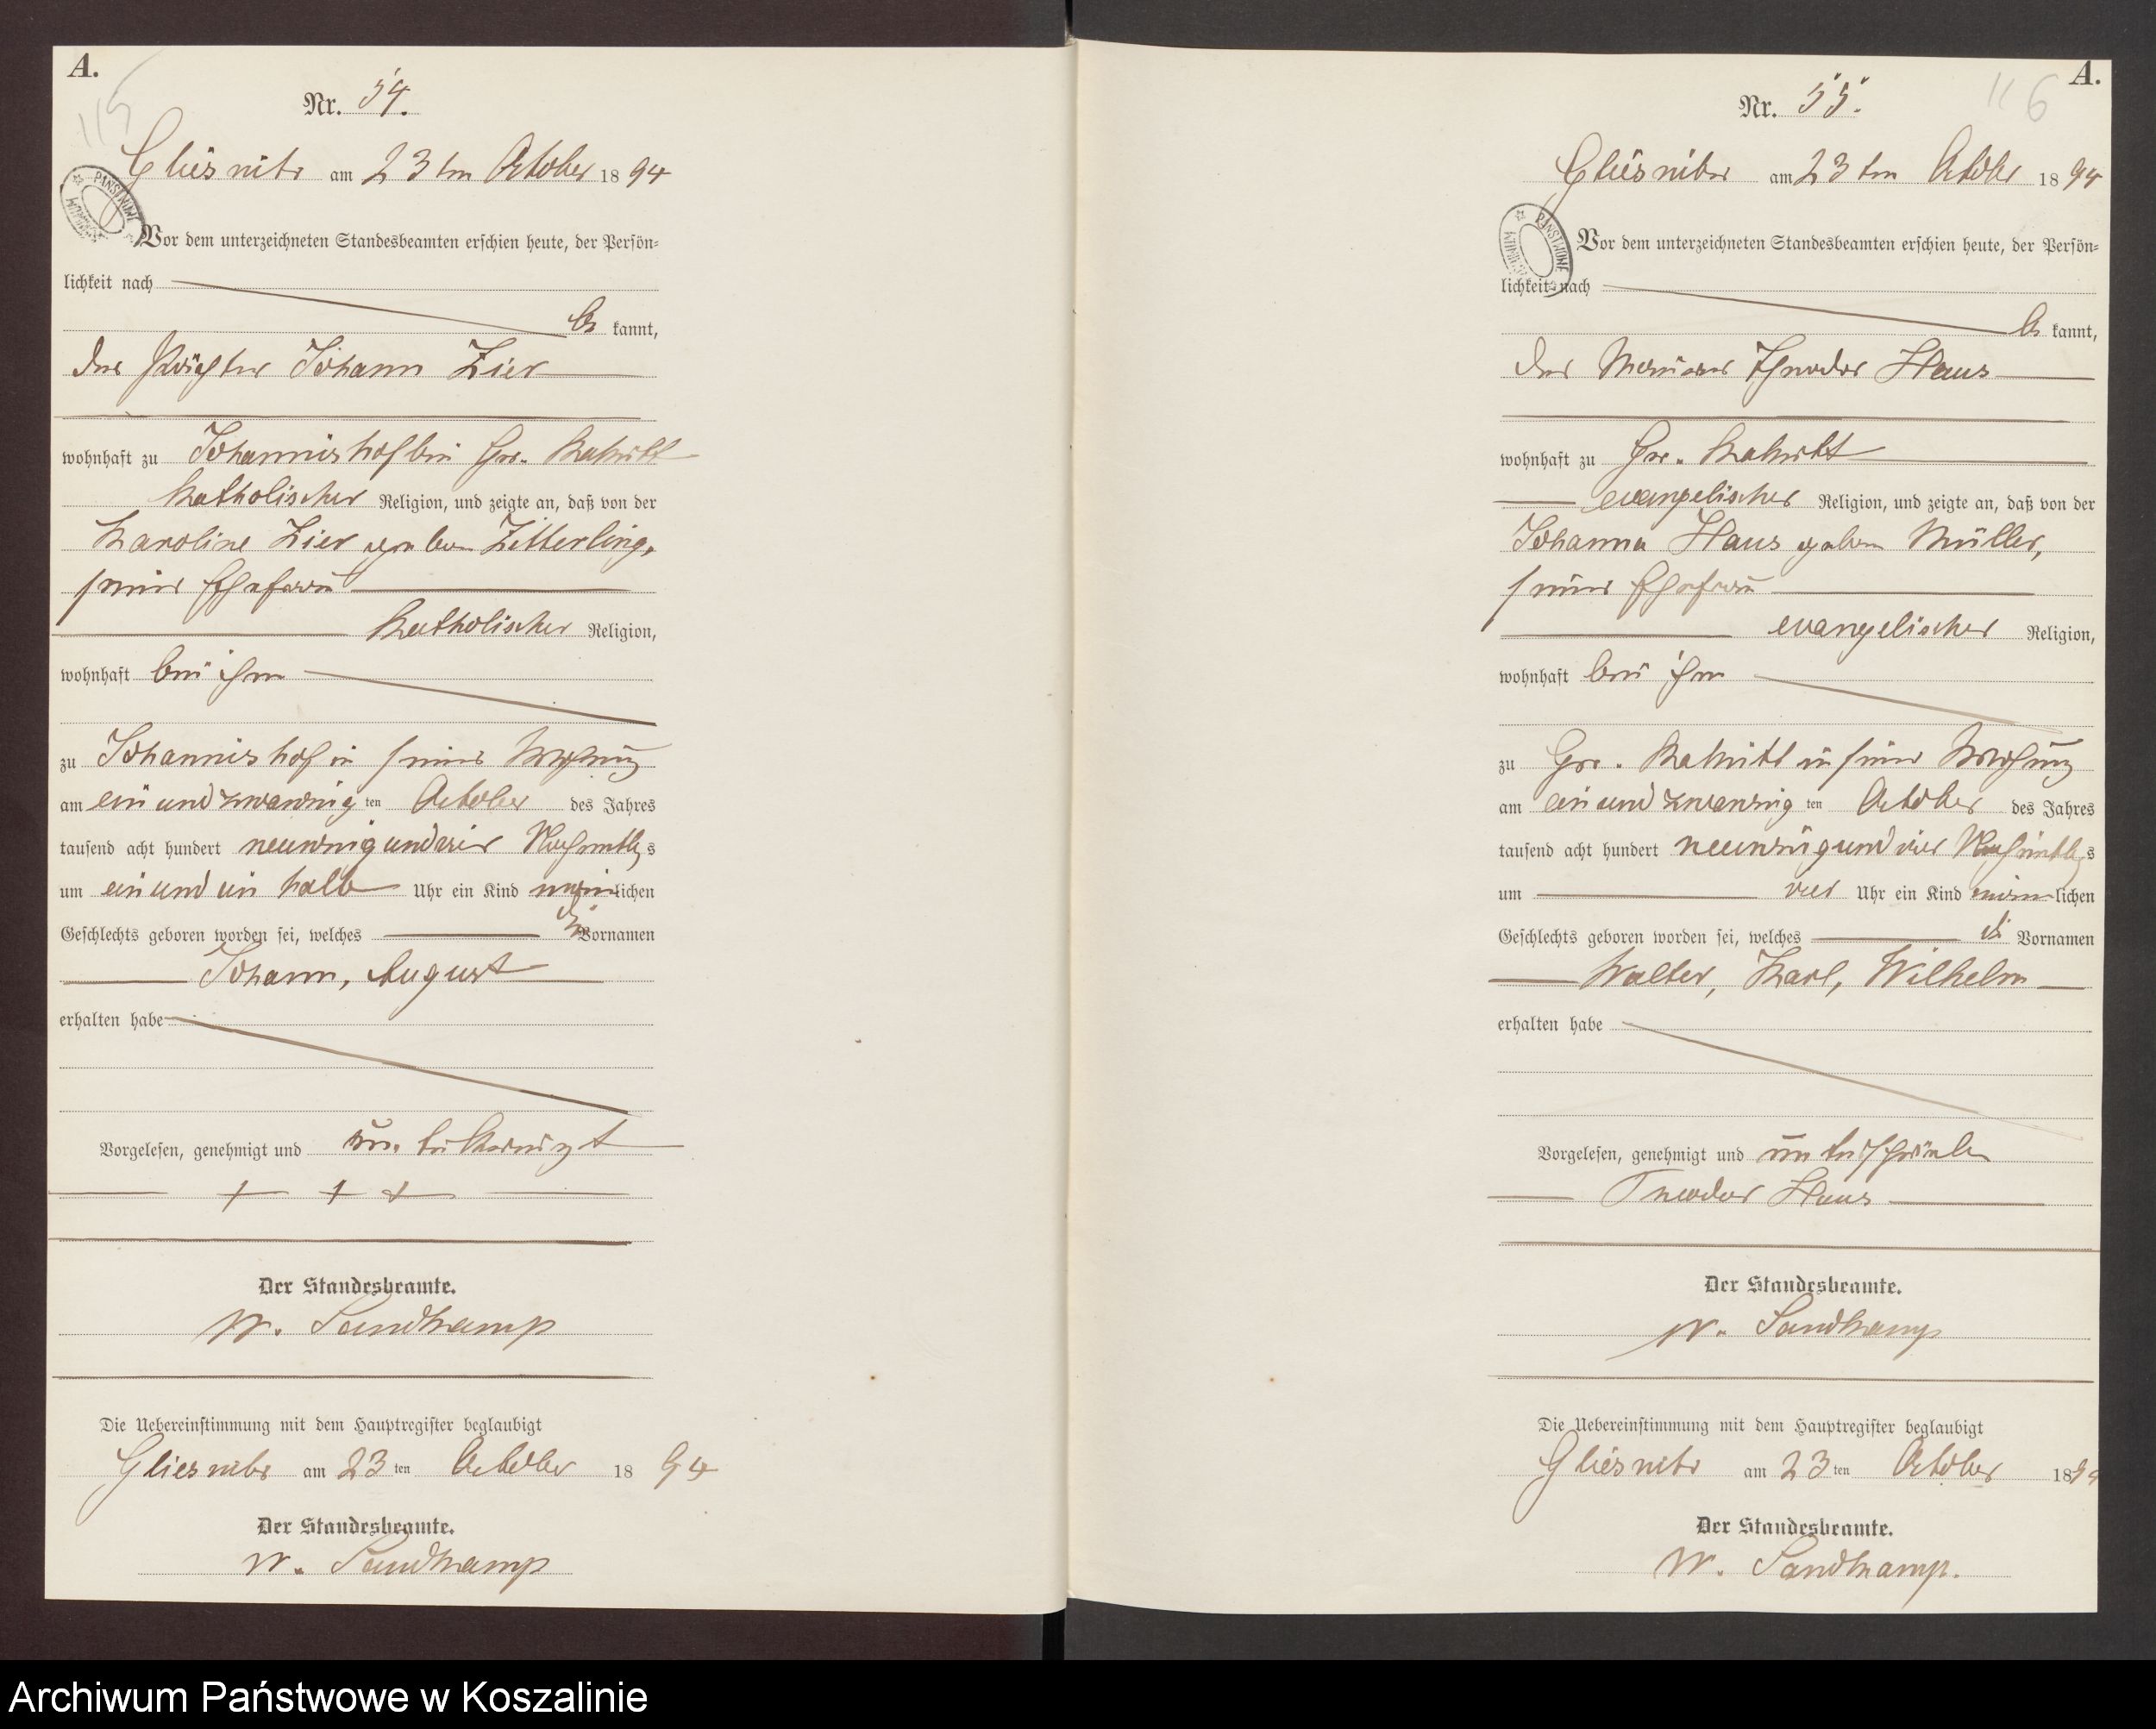 A.
115
Nr. 54.
Gliesnitz am 23ten October 1894
PAŃSTWOWE
Vor dem unterzeichneten Standesbeamten erschien heute, der Persön-
lichkeit nach
be kannt,
der Pächter Johann Zier
wohnhaft zu Johannishof bei Gr.
katholischer Religion, und zeigte an, daß von der
Karoline Zier geboren Zitterling,
seiner Ehefrau
katholischer Religion,
wohnhaft bei ihm
zu Johannishof in seiner Wohnung
am ein und zwanzig ten October des Jahres
tausend acht hundert neunzig und vier Nachmittags
um ein und ein halb Uhr ein Kind männlichen
Geschlechts geboren worden sei, welches die Vornamen
Johann, August
erhalten habe
Vorgelesen, genehmigt und unterkreuzt
+ + +
Der Standesbeamte.
W. Sandkamp
Die Uebereinstimmung mit dem Hauptregister beglaubigt
Gliesnitz am 23ten October 1894
Der Standesbeamte.
W. Sandkamp
A.
116
Nr. 55.
Gliesnitz am 23ten October 1894
PAŃSTWOWE
Vor dem unterzeichneten Standesbeamten erschien heute, der Persön-
lichkeit nach
be kannt,
der Maurer Theodor Haus
wohnhaft zu Gr.
evangelischer Religion, und zeigte an, daß von der
Johanna Haus geboren Müller,
seiner Ehefrau
evangelischer Religion,
wohnhaft bei ihm
zu Gr. in seiner Wohnung
am ein und zwanzig ten October des Jahres
tausend acht hundert neunzig und vier Nachmittags
um vier Uhr ein Kind männlichen
Geschlechts geboren worden sei, welches die Vornamen
Walter, Karl, Wilhelm
erhalten habe
Vorgelesen, genehmigt und unterschrieben
Theodor Haus
Der Standesbeamte.
W. Sandkamp
Die Uebereinstimmung mit dem Hauptregister beglaubigt
Gliesnitz am 23ten October 1894
Der Standesbeamte.
W. Sandkamp.
Archiwum Państwowe w Koszalinie